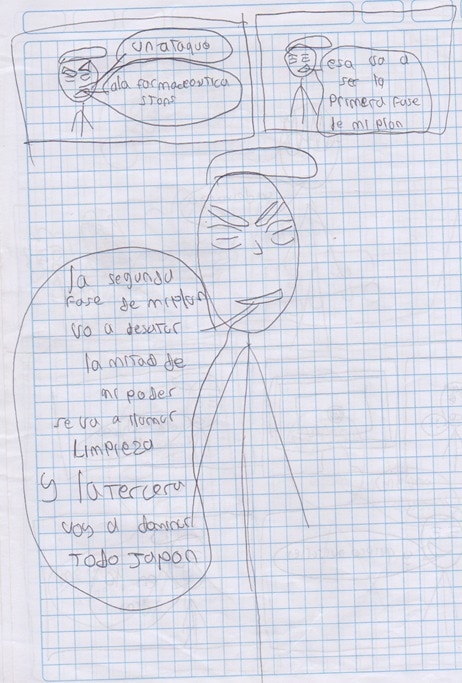 un ataque
ala farmaceutica
stons
esa va a
ser la
primera fase
de mi plan
la segunda
fase de mi plan
va a desatar
la mitad de
mi poder
se va a llamar
Limpieza
y la tercera
voy a dominar
Todo Japon